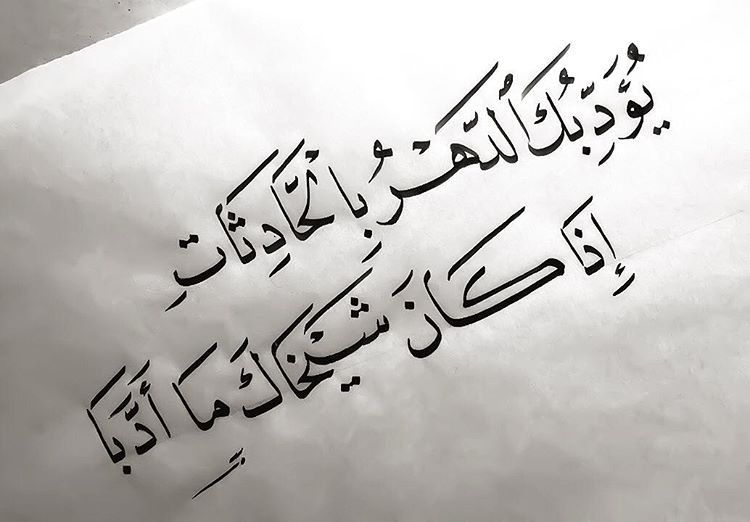 يُؤَدِّبُكَ ٱلدَّهْرُ بِالْحَادِثَاتِ
إِذَا كَانَ شَيْخَاكَ مَا أَدَّبَا